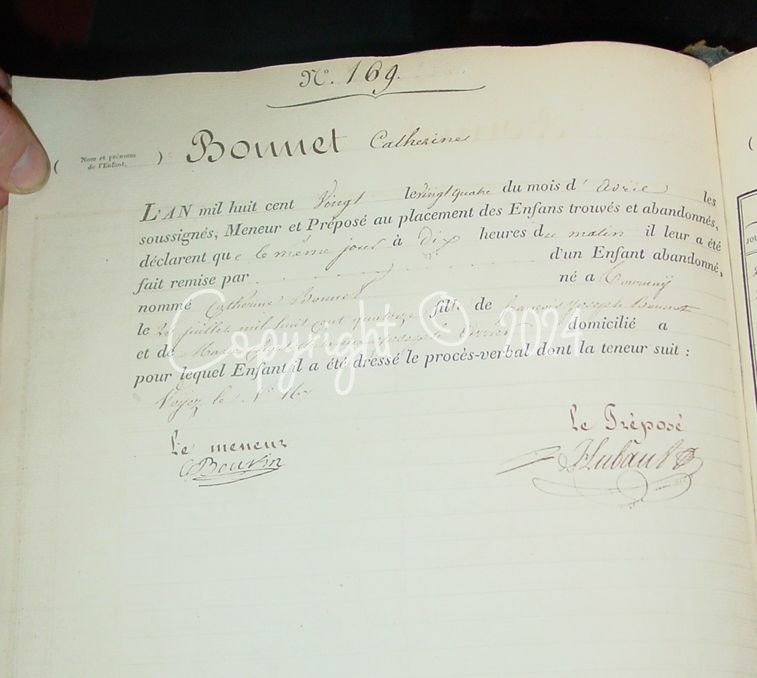 N.º 169.
( Nom et prénoms de l'Enfant. ) Bonnet Catherine
L'AN mil huit cent Vingt le vingt quatre du mois d'avril les
soussignés, Meneur et Préposé au placement des Enfans trouvés et abandonnés,
déclarent que le même jour à dix heures du matin il leur a été
fait remise par d'un Enfant abandonné,
nommé Catherine Bonnet né a Tournay
le 20 juillet mil huit cent quatorze fille de françois joseph Bonnet
et de domicilié a
pour lequel Enfant il a été dressé le procès-verbal dont la teneur suit :
Voyez le N.º
Le meneur
Le Préposé
Bouvin
Copyright © 2024